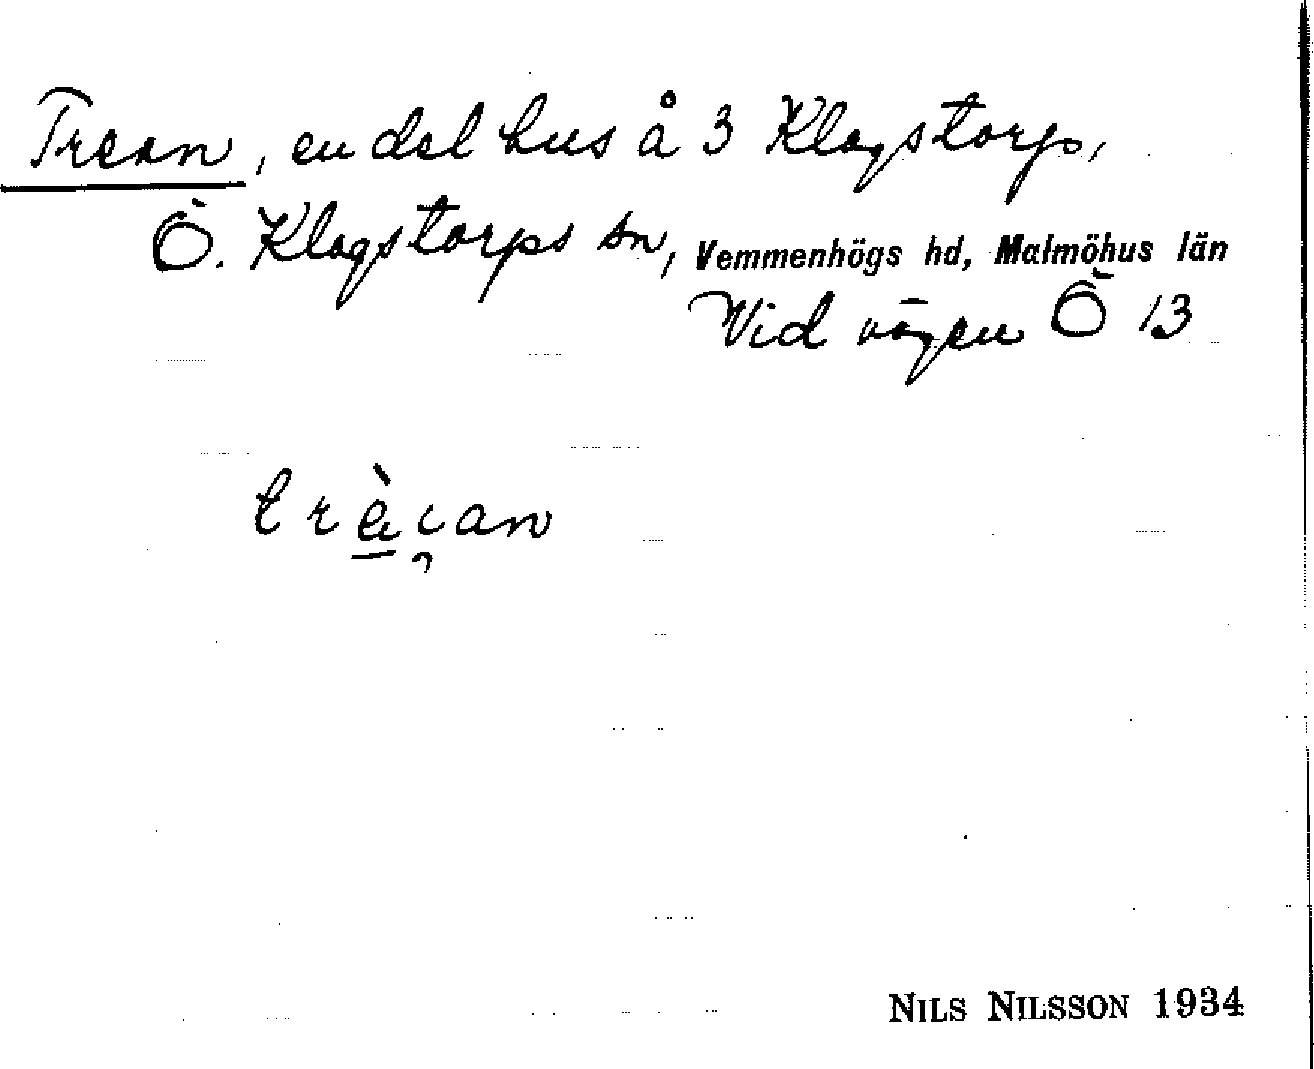 Trean, en del hus å 3 Klagstorp,
Ö. Klagstorps sn, Vemmenhögs hd, Malmöhus län
Vid vägen Ö 13
träi̯an
NILS NILSSON 1934